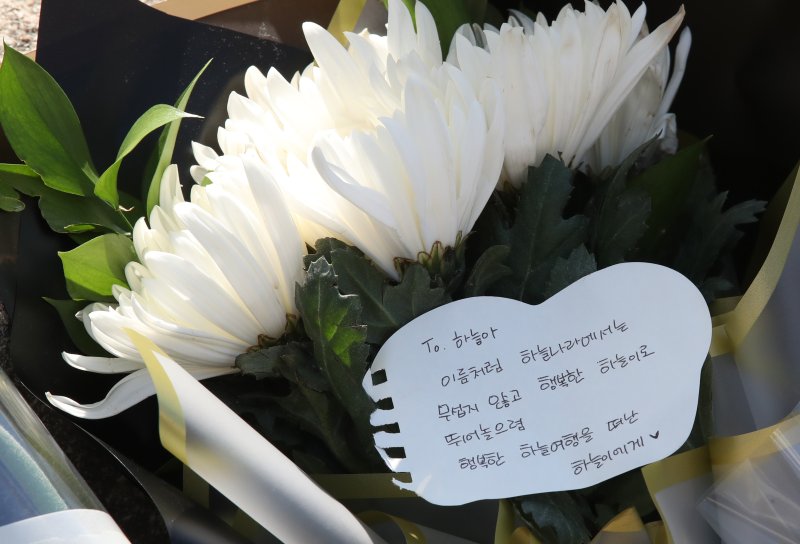 To. 하늘아
이름처럼 하늘나라에서는
무섭지 않고 행복한 하늘이로
뛰어놀으렴
행복한 하늘여행을 떠난
하늘이에게 ♥